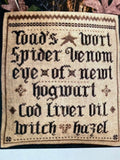 Toad's Wort
Spider Venom
eye of newt
hogwart
Cod Liver Oil
witch hazel